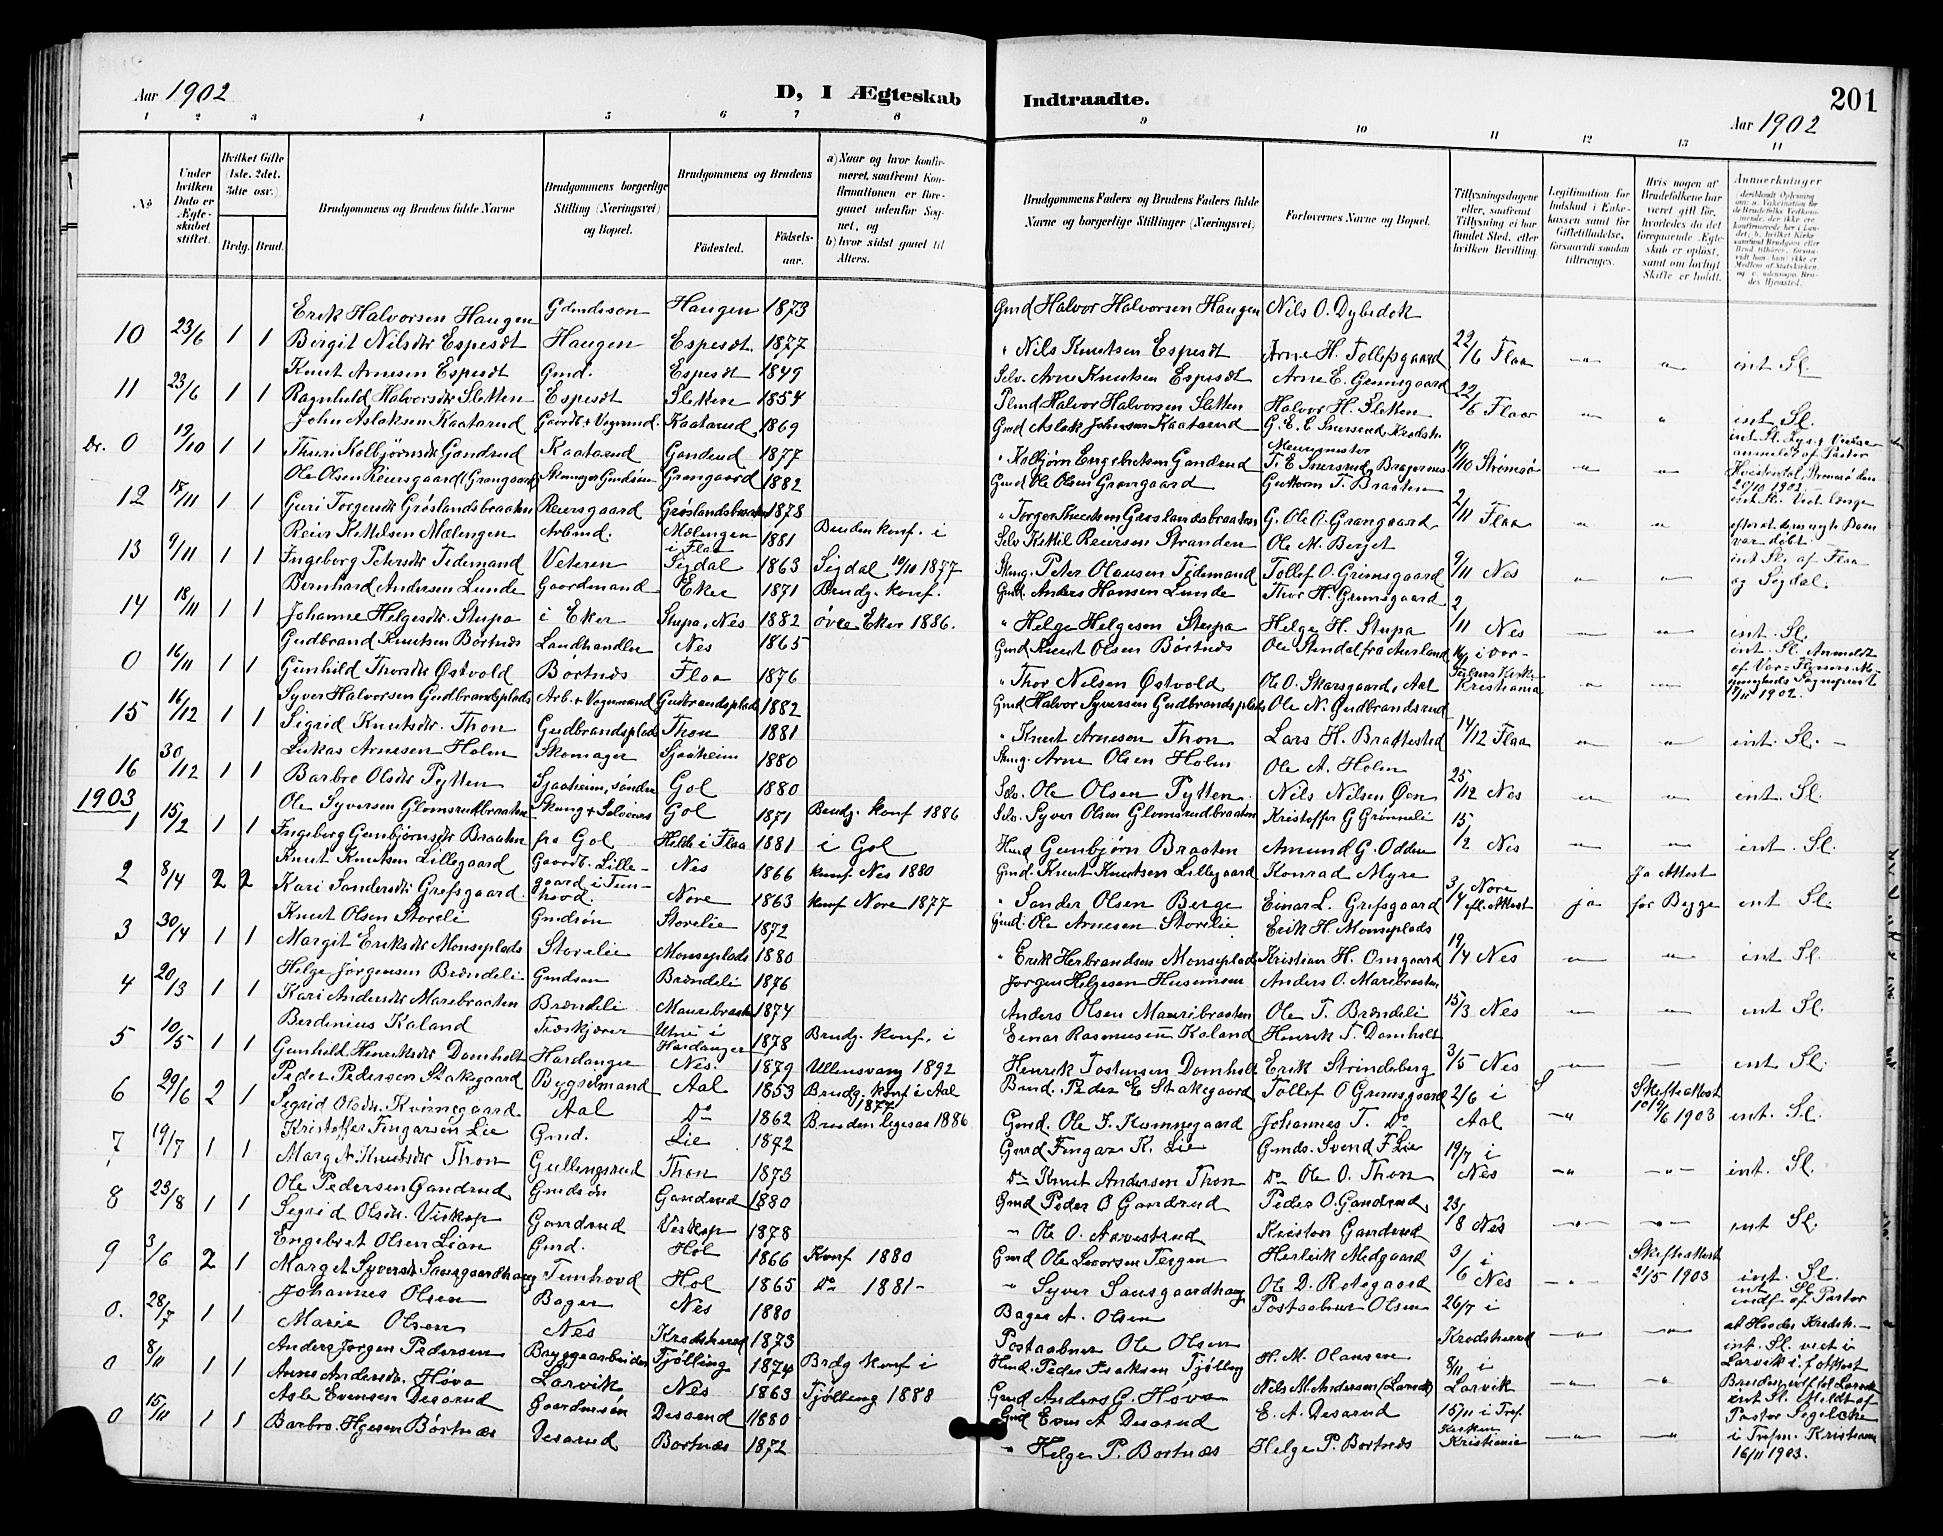 Aar 1902
D, I Ægteskab Indtraadte.
201
Aar 1902
1 2 3 4 5 6 7 8 9 10 11 12 13 14
No
Under hvilken Dato er Ægteskabet stiftet.
Hvilket Gifte (1ste. 2det. 3die osv.)
Brdg. Brud.
Brudgommens og Brudens fulde Navne
Brudgommens borgerlige Stilling (Næringsvei) og Bopæl.
Brudgommens og Brudens
Födested. Födselsaar.
a) Naar og hvor konfirmeret, saafremt Konfirmationen er foregaaet udenfor Sognet, og
b) hvor sidst gaaet til Alters.
Brudgommens Faders og Brudens Faders fulde Navne og borgerlige Stillinger (Næringsvei)
Forlovernes Navne og Bopæl.
Tillysningsdagene eller, saafremt Tillysning ei har fundet Sted, efter hvilken Bevilling.
Legitimation for Indskud i Enkekassen samt for Giftetilladelse, forsaavidt saadan tiltrænges.
Hvis nogen af Brudefolkene har været gift för, hvorledes da det foregaaende Ægteskab er oplöst, samt om lovligt Skifte er holdt.
Anmerkninger
Erik Halvorsen Haugen Gdmdssøn Haugen 1873 Gmd Halvor Halvorsen Haugen Nils O. Dybedok
10 23/6 1 1 Bergit Nilsdtr Espesdt Haugen Espesdt. 1877 " Nils Knutsen Espesdt Arne H. Tollefsgaard 22/6 Flaa int Sl.
Knut Arnesen Espesdt Gmd. Espesdt 1849 Selv. Arne Knutsen Espesdt Arne E. Gunnsgaard
11 23/6 1 1 Ragnhild Halvorsdtr Sletten Espesdt Sletten 1854 Plmd Halvor Halvorsen Sletten Halvor H. Sletten 22/6 Flaa int Sl.
John Aslaksen Kaatarud Gaardb. + Vognmd. Kaatarud 1869 Gmd Aslak Johnsen Kaatarud G. E. E. Snersrud, Krødsh.
Dr. 0 19/10 1 1 Thuri Kolbjørnsdtr Gandrud Kaatarud Gandrud 1877 " Kolbjørn Engebretsen Gandrud Murermester T. E. Snersrud, Bragernes 19/10 Strømsø
Ole Olsen Reiersgaard (Grøngaard) Skomager Gmdsøn Grøngaard 1882 Gmd Ole Olsen Grøngaard Guttorm T. Braaten
12 18/11 1 1 Guri Torgersdtr Grøslandsbraaten Reiersgaard Grøslandsbraaten 1878 " Torger Knutsen Grøslandsbraaten G. Ole O. Grøngaard 2/11 Flaa
Reier Kittilsen Mælengen Arbmd. Mælengen i Flaa 1881 Bruden konf. i Selv Kittil Reiersen Stranden Ole M. Berget
13 9/11 1 1 Ingeborg Petersdtr Tidemand Veteren Sigdal 1863 Sigdal 14/10 1877 Skmg. Peter Olausen Tidemand Tollef O. Grimsgaard 9/11 Nes int Sl. af Flaa og Sigdal.
Bernhard Andersen Lunde Gaardmand Eker 1871 Brudg. konf. Gmd. Anders Hansen Lunde Thor H. Grimsgaard
14 18/11 1 1 Johanne Helgesdtr. Stupa i Eker Stupa, Nes 1882 øvre Eker 1886. " Helge Helgeson Stupa Helge H. Stupa 2/11 Nes int. Sl.
Gudbrand Knutsen Børtnes Landhandler Nes 1865 Gmd Knut Olsen Børtnes
0 16/11 1 1 Gunhild Thorsdtr Østvold Børtnes Flaa 1876 " Thor Nilsen Østvold Ole O. Skarsgaard, Aal 16/11 i Vor-Frelsers Kirke Kristiania
Syver Halvorsen Gudbrandsplads Arb. + Vognmand Gudbrandsplads 1882 Gmd Halvor Syversen Gudbrandsplads Ole N. Gudbrandsrud
15 16/12 1 1 Sigrid Knutsdtr. Thon Gudbrandsplads Thon 1881 " Knut Arnesen Thon Lars H. Brattested 14/12 Flaa int. Sl.
Lukas Arnesen Holm Skomager Sjaaheim 1880 Skmg. Arne Olsen Holm Ole A. Holm
16 30/12 1 1 Barbro Olsdtr Pytten Sjaaheim, søndre Gol 1880 Selv. Ole Olsen Pytten Nils Nilsen Øen 25/12 Nes int. Sl.
1903
Ole Syversen Glomsrudbraaten Skmg + Selveiers Gol 1871 Brudg. konf 1886 Selv. Syver Olsen Glomsrudbraaten Kristoffer G Grimeli
1 15/2 1 1 Ingeborg Gunbjørnsdtr Braaten fra Gol Hilde i Flaa 1881 i Gol Husmd Gunbjørn Braaten Amund G. Odden 15/2 Nes int. Sl.
Knut Knutsen Lillegaard Gaardb. Lillegaard i Tunhovd. Nes 1866 konf. Nes 1880 Gmd. Knut Knutsen Lillegaard Konrad Myre
2 8/4 2 2 Kari Sandersdtr Grefsgaard. Nore 1863 konf Nore 1877 " Sander Olsen Berge Einar L. Grefsgaard 3/4 Nore efl. Attest ja Ja Attest for Begge int Sl.
Knut Olsen Storeli Gmdsøn Storelie 1872 Gmd. Ole Arnesen Storelie Erik H. Monseplads
3 30/4 1 1 Margit Eriksdtr Monseplads Storelie Monseplads 1880 " Erik Herbrandsen Monseplads Kristian H. Omgaard 19/4 Nes int Sl.
Helge Jørgensen Brøndeli Gmdsøn Brøndeli 1876 Jørgen Helgesen Husemoen Anders O. Maribraaten
4 20/3 1 1 Kari Andersdtr Maribraaten Brøndeli Mauribraaten 1874 Anders Olsen Mauribraaten Ole T. Brøndeli 15/3 Nes int Sl.
Berdinius Kaland Træskjærer Utne i Hardanger 1878 Brudg. konf. i Einar Rasmussen Kaland Henrik T. Domholt
5 10/5 1 1 Gunhild Henriksdtr Domholt Hardanger Nes. 1879 Ullensvang 1892 Henrik Tostensen Domholt Erik Strindeberg 3/5 Nes int Sl.
Peder Pedersen Stakegaard Bygselmand Aal 1853 Brudg. konf i Aal 1877 Brnd. Peder E Stakegaard Tollef O Grimsgaard
6 29/6 2 1 Sigrid Olsdtr. Kvinnegaard Aal Do 1862 Bruden ligesaa 1886 Gmd. Ole J. Kvinnegaard Johannes T. Do 2/6 i Aal Skifteattest 10/6 1903 int. Sl.
Kristoffer Fingarsen Lie Gmd. Lie 1872 Gmd Fingar K. Lie Gmds. Svend F Lie
7 19/7 1 1 Margit Knutsdtr Thon Gullingsrud Thon 1873 Do Knut Andersen Thon Do Ole O. Thon 19/7 i Nes int. Sl.
Ole Pedersen Gandrud Gmdsøn Gandrud 1880 Gmd Peder O Gandrud Peder O. Gandrud
8 23/8 1 1 Sigrid Olsdtr. Viskop Gandrud Viskop 1878 " Ole O. Aavestrud Kristen Gandrud 23/8 Nes int Sl.
Engebret Olsen Lian Gmd. Hol 1866 Konf 1880 Gmd Ole Livorsen Tergen Herleik Medgaard
9 3/6 2 1 Marget Syversdtr Sausgaardhaug Tunhovd Hol 1865 Do 1881- " Syver Sausgaardhaug Ole D. Rotegaard 3/6 i Nes Skifteattest 21/5 - 1903 int. Sl.
Johannes Olsen Bager Nes 1880 Bager A. Olsen Postaabner Olsen
0. 28/7 1 1 Marie Olsen Nes Krødsherad 1873 Postaabner Ole Olsen 26/7 i Krødsherad
Anders Jørgen Pedersen Bryggearbeider Tjølling 1874 Brdg konf i Husmd. Peder Isaksen Tjølling H. M. Olausen
0 8/11 1 1 Anne Andersdtr. Høva Larvik Nes 1863 Tjølling 1888 Gmd Anders G. Høva Nils M. Andersen (Larvik) 8/11 i Larvik
Asle Evensen Desarud Gaardmssøn Desarud 1880 Gmd Even A Desarud E. A. Desarud
0 15/11 1 1 Barbro Hgesen Børtnæs Desarud Bortnæs 1872 " Helge P. Bortnæs Helge P. Bortnes 15/11 i Tref. Kirken Kristiania 16/11 1903.